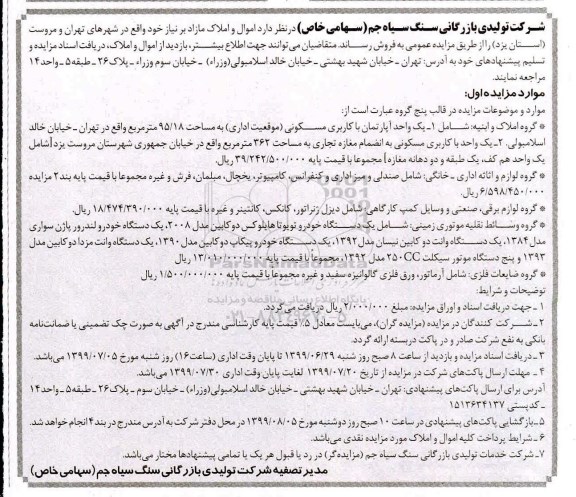 شرکت تولیدی بازرگانی سنگ سیاه جم (سهامی خاص) در نظر دارد اموال و املاک مازاد بر نیاز خود واقع در شهرهای تهران و مروست
(استان یزد) را از طریق مزایده عمومی به فروش رساند. متقاضیان می‌توانند جهت اطلاع بیشتر، بازدید از اموال و املاک، دریافت اسناد مزایده و
تسلیم پیشنهادهای خود به آدرس: تهران - خیابان شهید بهشتی - خیابان خالد اسلامبولی (وزراء) - خیابان سوم وزراء - پلاک ۲۶ - طبقه ۵ - واحد ۱۴
مراجعه نمایند.
موارد مزایده اول:
موارد و موضوعات مزایده در قالب پنج گروه عبارت است از:
* گروه املاک و ابنیه: شامل ۱- یک واحد آپارتمان با کاربری مسکونی (موقعیت اداری) به مساحت ۹۵/۱۸ مترمربع واقع در تهران - خیابان خالد
اسلامبولی. ۲- یک واحد با کاربری مسکونی به انضمام مغازه تجاری به مساحت ۳۶۲ مترمربع واقع در خیابان جمهوری شهرستان مروست یزد [شامل
یک واحد هم کف، یک طبقه و دو دهانه مغازه] مجموعا با قیمت پایه ۳۹/۲۴۲/۵۰۰/۰۰۰ ریال.
* گروه لوازم و اثاثه اداری - خانگی: شامل صندلی و میز اداری و کنفرانس، کامپیوتر، یخچال، مبلمان، فرش و غیره مجموعا با قیمت پایه بند ۲ مزایده
۶/۵۹۸/۴۵۰/۰۰۰ ریال.
* گروه لوازم برقی، صنعتی و وسایل کمپ کارگاهی: شامل دیزل ژنراتور، کانکس، کانتینر و غیره با قیمت پایه ۱۸/۴۷۴/۳۹۰/۰۰۰ ریال.
* گروه وسائط نقلیه موتوری زمینی: شامل یک دستگاه خودرو تویوتا هایلوکس دو کابین مدل ۲۰۰۸، یک دستگاه خودرو لندرور پاژن سواری
مدل ۱۳۸۴، یک دستگاه وانت دو کابین نیسان مدل ۱۳۹۲، یک دستگاه خودرو پیکاپ دو کابین مدل ۱۳۹۰، یک دستگاه وانت مزدا دو کابین مدل
۱۳۹۳ و پنج دستگاه موتور سیکلت ۲۵۰CC مدل ۱۳۹۲، مجموعا با قیمت پایه ۱۳/۰۱۰/۰۰۰/۰۰۰ ریال.
* گروه ضایعات فلزی: شامل آرماتور، ورق فلزی گالوانیزه سفید و غیره مجموعا با قیمت پایه ۱/۵۰۰/۰۰۰/۰۰۰ ریال
توضیحات و شرایط:
۱- جهت دریافت اسناد و اوراق مزایده: مبلغ ۲/۰۰۰/۰۰۰ ریال دریافت می‌گردد.
۲- شرکت کنندگان در مزایده (مزایده گران)، می‌بایست معادل ۵٪ قیمت پایه کارشناسی مندرج در آگهی به صورت چک تضمینی یا ضمانت‌نامه
بانکی به نفع شرکت صادر و در پاکت دربسته ارائه گردد.
۳- دریافت اسناد مزایده و بازدید از ساعت ۸ صبح روز شنبه ۱۳۹۹/۰۶/۲۹ تا پایان وقت اداری (ساعت ۱۶) روز شنبه مورخ ۱۳۹۹/۰۷/۰۵ می‌باشد.
۴- مهلت ارسال پاکت‌های شرکت در مزایده از تاریخ ۱۳۹۹/۰۷/۲۰ لغایت پایان وقت اداری ۱۳۹۹/۰۷/۳۰ می‌باشد.
آدرس برای ارسال پاکت‌های پیشنهادی: تهران - خیابان شهید بهشتی - خیابان خالد اسلامبولی (وزراء) - خیابان سوم - پلاک ۲۶ - طبقه ۵ - واحد ۱۴
- کدپستی ۱۵۱۳۶۳۴۱۳۷
۵- بازگشایی پاکت‌های پیشنهادی در ساعت ۱۰ صبح روز دوشنبه مورخ ۱۳۹۹/۰۸/۰۵ در محل دفتر شرکت به آدرس مندرج در بند ۴ انجام خواهد شد.
۶- شرایط پرداخت کلیه اموال و املاک مورد مزایده نقدی می‌باشد.
۷- شرکت خدمات تولیدی بازرگانی سنگ سیاه جم (مزایده‌گر) در رد یا قبول هر یک یا تمامی پیشنهادها مختار می‌باشد.
مدیر تصفیه شرکت تولیدی بازرگانی سنگ سیاه جم (سهامی خاص)